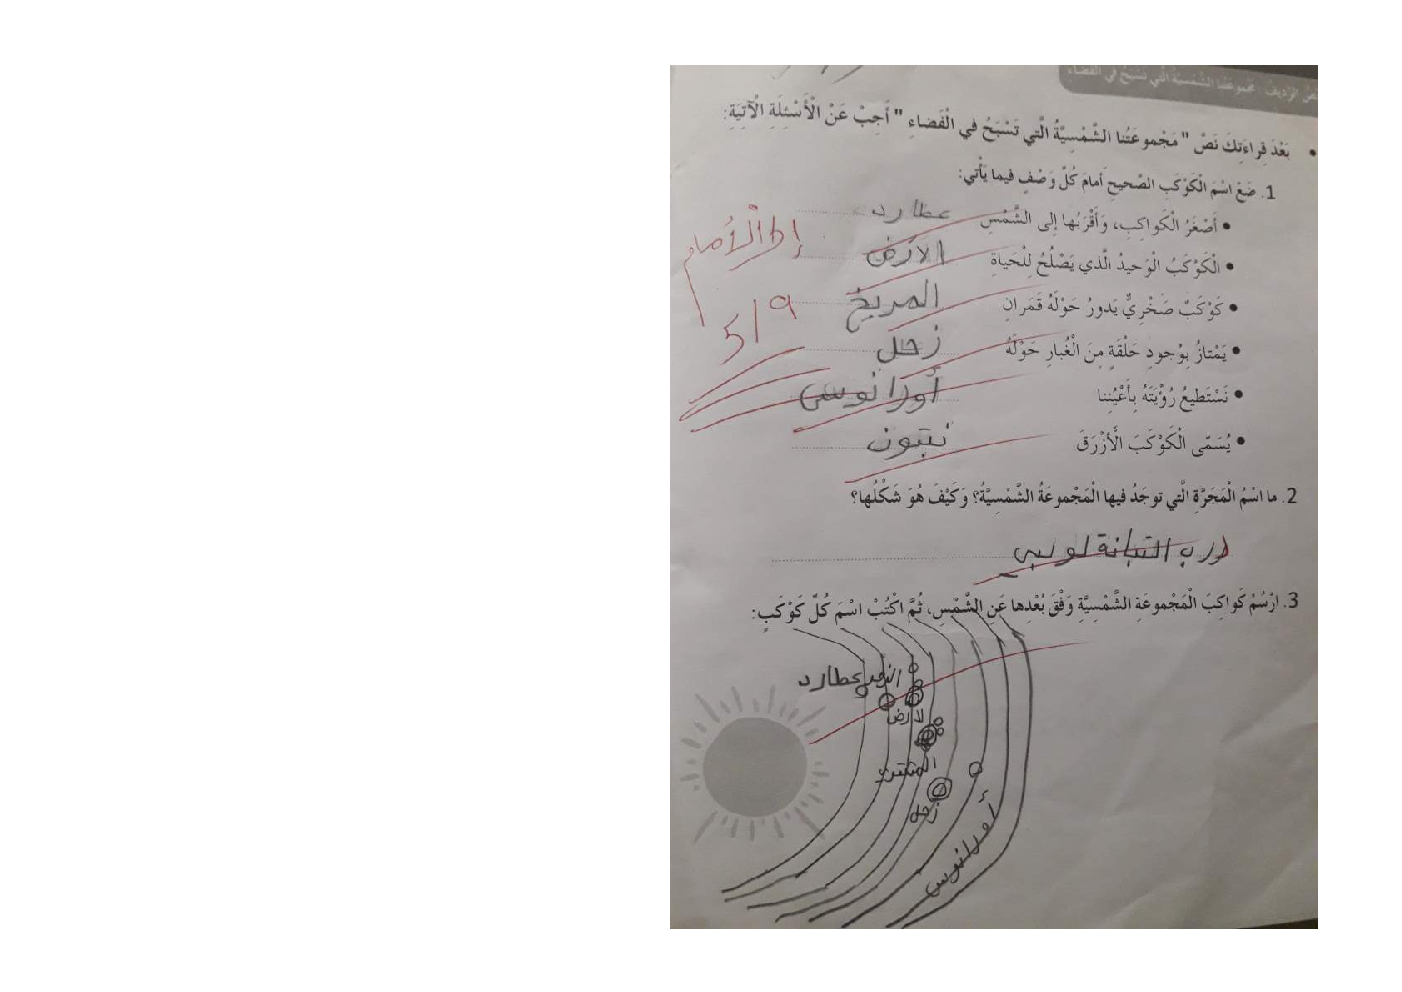 نص الرديف: مجموعتنا الشمسية التي تسبح في الفضاء
• بَعْدَ قِراءَتِكَ نَصَّ " مَجْموعَتُنا الشَّمْسِيَّةُ الَّتي تَسْبَحُ في الْفَضاءِ " أَجِبْ عَنْ الْأَسْئِلَةِ الْآتِيَةِ:
1. ضَعْ اسْمَ الْكَوْكَبِ الصَّحيحِ أَمامَ كُلِّ وَصْفٍ فيما يَأْتي:
• أَصْغَرُ الْكَواكِبِ، وَأَقْرَبُها إلى الشَّمْسِ عطارد
• الْكَوْكَبُ الْوَحيدُ الَّذي يَصْلُحُ لِلْحَياةِ الارض
• كَوْكَبٌ صَخْرِيٌّ يَدورُ حَوْلَهُ قَمَرانِ المريخ
• يَمْتازُ بِوُجودِ حَلْقَةٍ مِنَ الْغُبارِ حَوْلَهُ زحل
• نَسْتَطيعُ رُؤْيَتَهُ بِأَعْيُنِنا أورانوس
• يُسَمّى الْكَوْكَبَ الْأَزْرَقَ نبتون
إلى الأمام
5/9
2. ما اسْمُ الْمَجَرَّةِ الَّتي توجَدُ فيها الْمَجْموعَةُ الشَّمْسِيَّةُ؟ وَكَيْفَ هُوَ شَكْلُها؟
درب التبانة لولبي
3. ارْسُمْ كَواكِبَ الْمَجْموعَةِ الشَّمْسِيَّةِ وَفْقَ بُعْدِها عَنِ الشَّمْسِ، ثُمَّ اكْتُبْ اسْمَ كُلِّ كَوْكَبٍ:
عطارد
لارض
المشتر
زحل
أورانوس